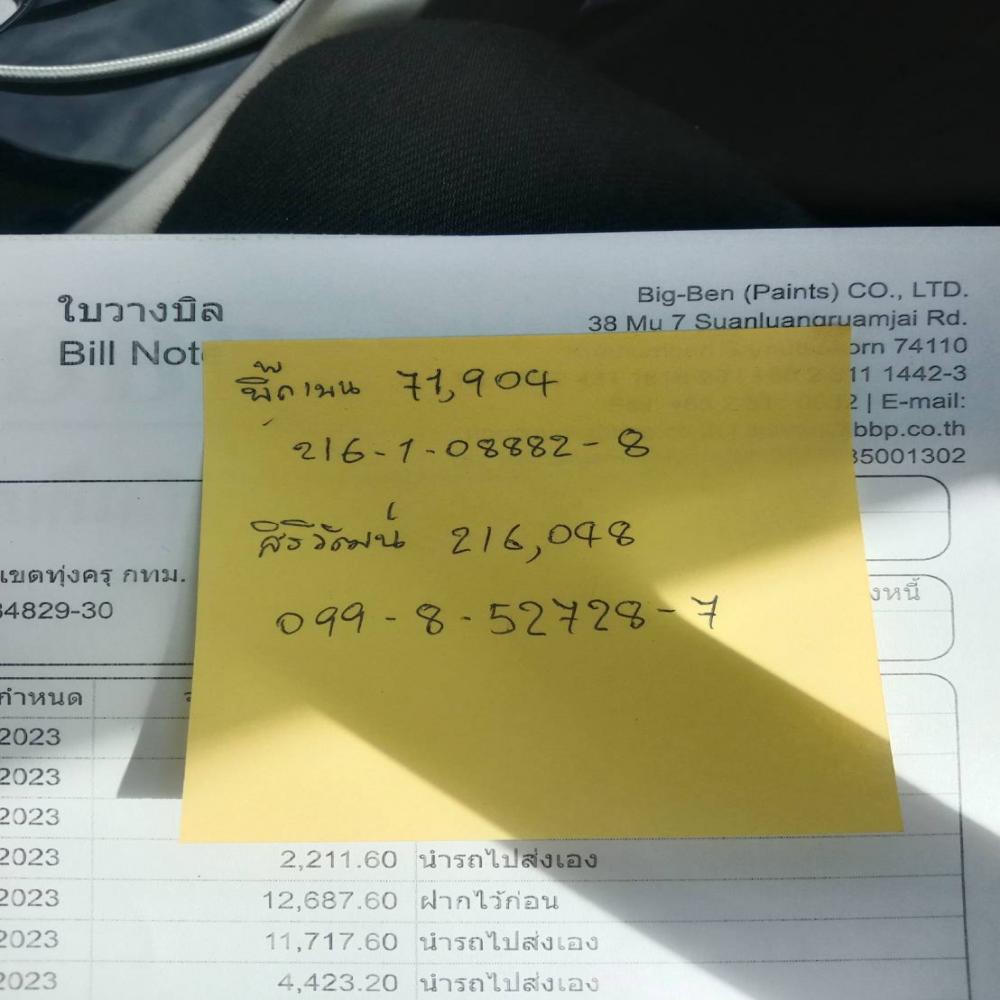 ใบวางบิล
Bill Note
Big-Ben (Paints) CO., LTD.
38 Mu 7 Suanluangruamjai Rd.
orn 74110
11 1442-3
2 | E-mail:
bbp.co.th
35001302
บิ๊กเบน 71,904
216-1-08882-8
สิริวัฒน์ 216,048
099-8-52728-7
เขตทุ่งครุ กทม.
34829-30
งหนี้
กำหนด
2023
2023
2023
2023 2,211.60 นำรถไปส่งเอง
2023 12,687.60 ฝากไว้ก่อน
2023 11,717.60 นำรถไปส่งเอง
2023 4,423.20 นำรถไปส่งเอง